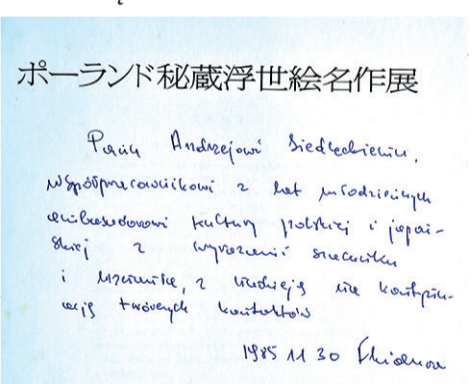 ポーランド秘蔵浮世絵名作展
Panu Andrzejowi Siedleckiemu,
współpracownikowi z lat młodzieńczych
ambasadorowi kultury polskiej i japoń-
skiej z wyrazami szacunku
i z nadzieją na kontynu-
ację twórczych kontaktów
1985 11 30